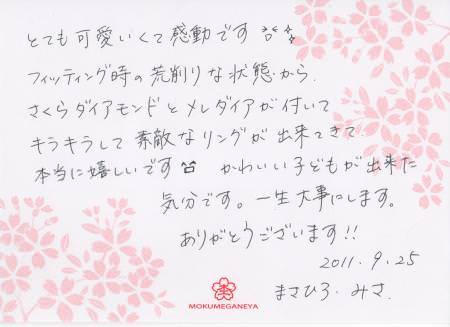 とても可愛いくて感動です
フィッティング時の荒削りな状態から、
さくらダイアモンドとメレダイアが付いて
キラキラして素敵なリングが出来てきて
本当に嬉しいです かわいい子どもが出来た
気分です。一生大事にします。
ありがとうございます!!
2011.9.25
まさひろ・みさ
MOKUMEGANEYA